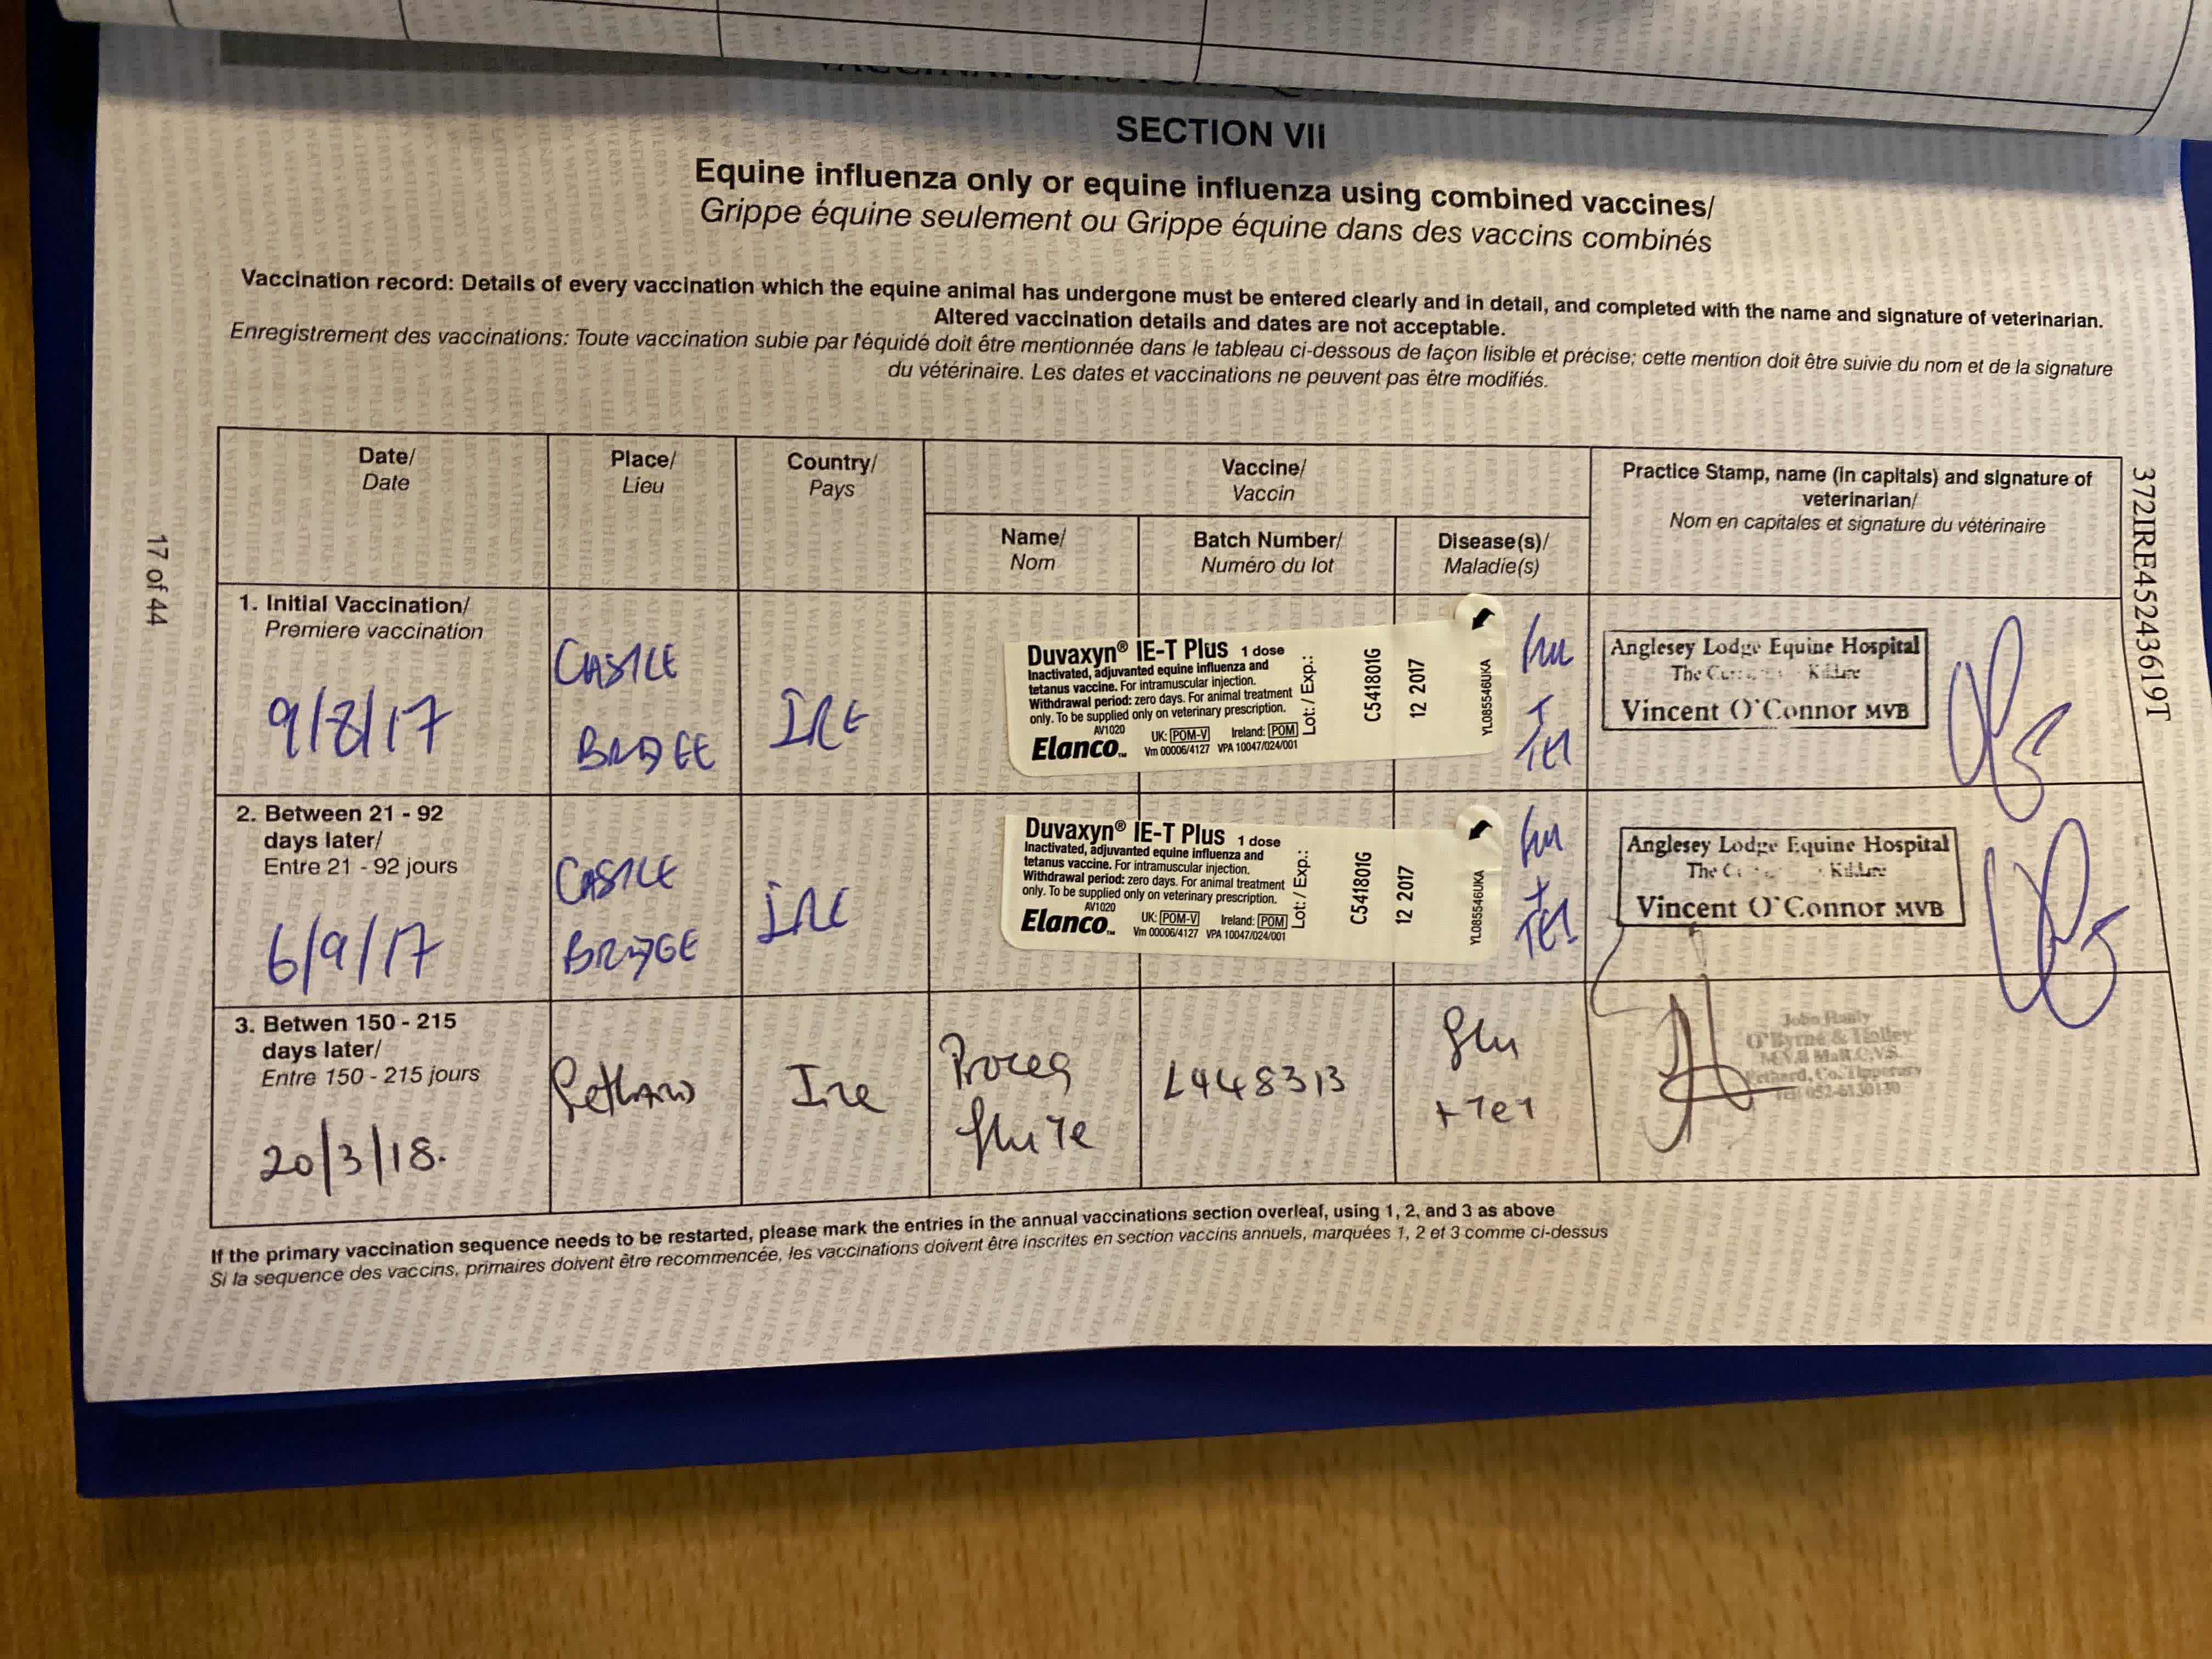 SECTION VII
Equine influenza only or equine influenza using combined vaccines/
Grippe équine seulement ou Grippe équine dans des vaccins combinés
Vaccination record: Details of every vaccination which the equine animal has undergone must be entered clearly and in detail, and completed with the name and signature of veterinarian.
Altered vaccination details and dates are not acceptable.
Enregistrement des vaccinations: Toute vaccination subie par l'équidé doit être mentionnée dans le tableau ci-dessous de façon lisible et précise; cette mention doit être suivie du nom et de la signature
du vétérinaire. Les dates et vaccinations ne peuvent pas être modifiés.
Date/
Date
Place/
Lieu
Country/
Pays
Vaccine/
Vaccin
Practice Stamp, name (in capitals) and signature of
veterinarian/
Nom en capitales et signature du vétérinaire
Name/
Nom
Batch Number/
Numéro du lot
Disease(s)/
Maladie(s)
1. Initial Vaccination/
Premiere vaccination
9/8/17
CASTLE
BRIDGE
IRE
Duvaxyn® IE-T Plus 1 dose
Inactivated, adjuvanted equine influenza and
tetanus vaccine. For intramuscular injection.
Withdrawal period: zero days. For animal treatment
only. To be supplied only on veterinary prescription.
AV1020
UK: POM-V Ireland: POM
Elanco™ Vm 00006/4127 VPA 10047/024/001
Lot: / Exp.:
C541801G
12 2017
YL085546UKA
Flu
+
TET
Anglesey Lodge Equine Hospital
The Kildare
Vincent O'Connor MVB
2. Between 21 - 92
days later/
Entre 21 - 92 jours
6/9/17
CASTLE
BRIDGE
IRE
Duvaxyn® IE-T Plus 1 dose
Inactivated, adjuvanted equine influenza and
tetanus vaccine. For intramuscular injection.
Withdrawal period: zero days. For animal treatment
only. To be supplied only on veterinary prescription.
AV1020
UK: POM-V Ireland: POM
Elanco™ Vm 00006/4127 VPA 10047/024/001
Lot: / Exp.:
C541801G
12 2017
YL085546UKA
Flu
+
TET
Anglesey Lodge Equine Hospital
The Kildare
Vincent O'Connor MVB
3. Betwen 150 - 215
days later/
Entre 150 - 215 jours
20/3/18.
Fethard
Ire
Proteq
flu Te
L448313
flu
+ Tet
O'Byrne & Halley
M.V.B M.R.C.V.S.
Fethard, Co. Tipperary
Tel: 052-6130130
If the primary vaccination sequence needs to be restarted, please mark the entries in the annual vaccinations section overleaf, using 1, 2, and 3 as above
Si la sequence des vaccins, primaires doivent être recommencée, les vaccinations doivent être inscrites en section vaccins annuels, marquées 1, 2 et 3 comme ci-dessus
17 of 44
372IRE45243619T